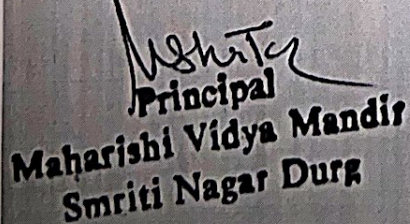 Principal
Maharishi Vidya Mandir
Smriti Nagar Durg